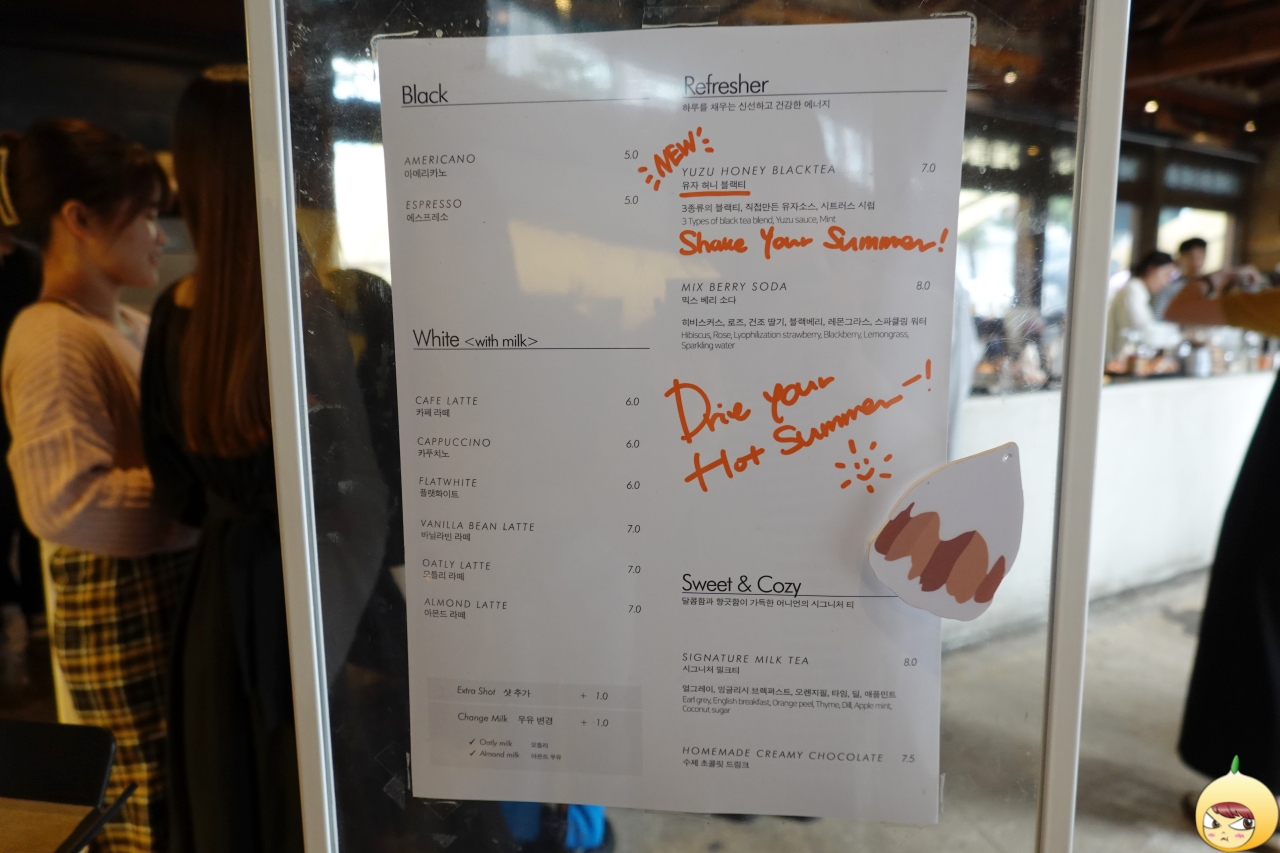 Black
AMERICANO 5.0
아메리카노
ESPRESSO 5.0
에스프레소
White <with milk>
CAFE LATTE 6.0
카페 라떼
CAPPUCCINO 6.0
카푸치노
FLATWHITE 6.0
플랫화이트
VANILLA BEAN LATTE 7.0
바닐라빈 라떼
OATLY LATTE 7.0
오틀리 라떼
ALMOND LATTE 7.0
아몬드 라떼
Extra Shot 샷 추가 + 1.0
Change Milk 우유 변경 + 1.0
✓ Oatly milk 오틀리
✓ Almond milk 아몬드 우유
Refresher
하루를 채우는 신선하고 건강한 에너지
NEW
YUZU HONEY BLACKTEA 7.0
유자 허니 블랙티
3종류의 블랙티, 직접만든 유자소스, 시트러스 시럽
3 Types of black tea blend, Yuzu sauce, Mint
Shake Your Summer!
MIX BERRY SODA 8.0
믹스 베리 소다
히비스커스, 로즈, 건조 딸기, 블랙베리, 레몬그라스, 스파클링 워터
Hibiscus, Rose, Lyophilization strawberry, Blackberry, Lemongrass,
Sparkling water
Drive your
Hot Summer-!
Sweet & Cozy
달콤함과 향긋함이 가득한 어니언의 시그니처 티
SIGNATURE MILK TEA 8.0
시그니처 밀크티
얼그레이, 잉글리시 브렉퍼스트, 오렌지필, 타임, 딜, 애플민트
Earl grey, English breakfast, Orange peel, Thyme, Dill, Apple mint,
Coconut sugar
HOMEMADE CREAMY CHOCOLATE 7.5
수제 초콜릿 드링크